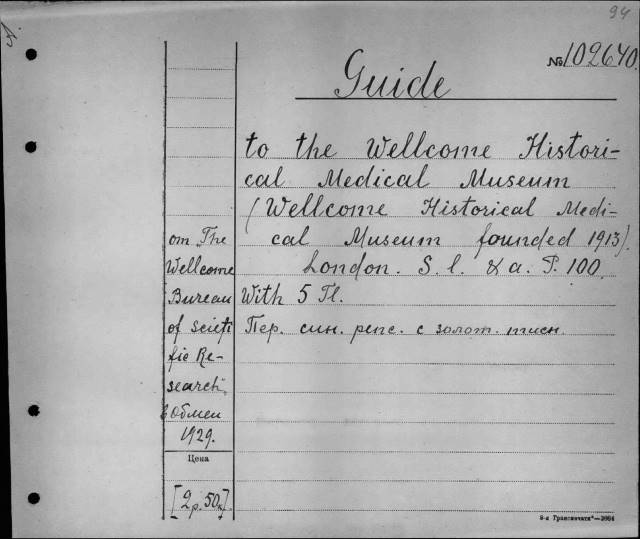 94
A.
№ 102640.
Guide
to the Wellcome Histori-
cal Medical Museum
(Wellcome Historical Medi-
cal Museum founded 1913).
London. S. l. & a. P. 100.
With 5 Tl.
Пер. син. репс. с золот. тисн.
om The
Wellcome
Bureau
of scieti
fic Re-
search,
Обмен
1929.
Цена
[2р.50к].